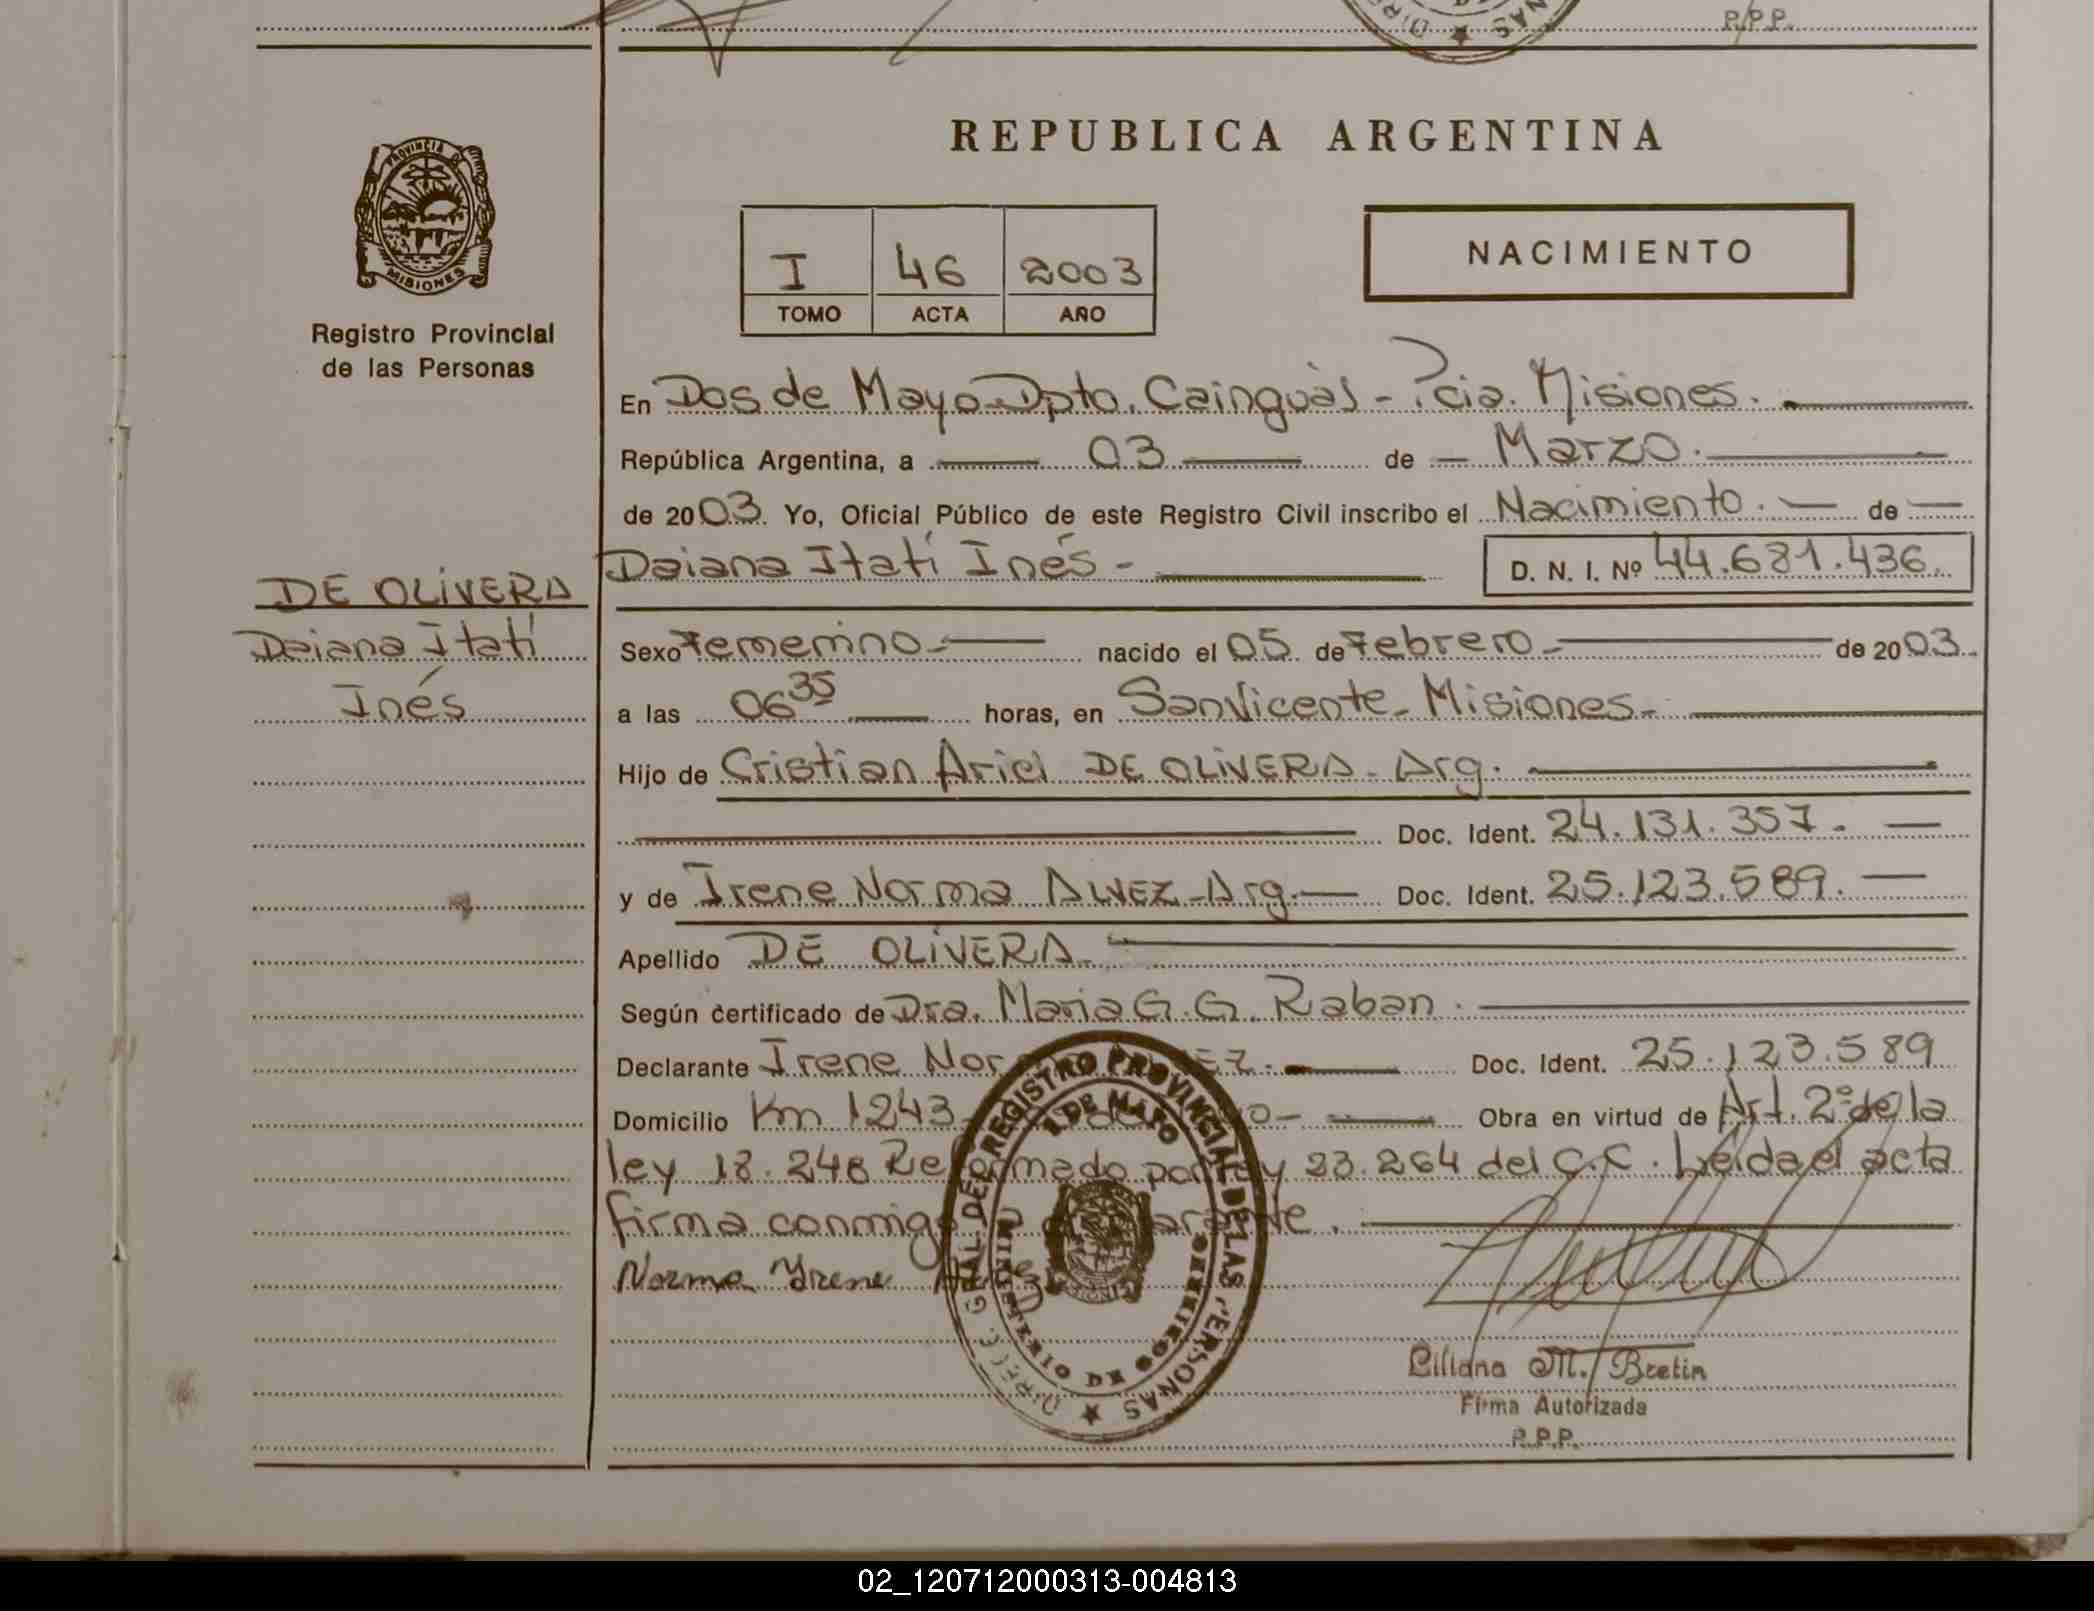 P.P.P.
REPUBLICA ARGENTINA
PROVINCIA DE MISIONES
Registro Provincial
de las Personas
NACIMIENTO
I 46 2003
TOMO ACTA AÑO
En Dos de Mayo Dpto. Cainguàs - Pcia. Misiones.
República Argentina, a 03 de Marzo.
de 2003. Yo, Oficial Público de este Registro Civil inscribo el Nacimiento. de
Daiana Itatí Inés - D. N. I. Nº 44.681.436.
DE OLIVERA
Daiana Itatí
Inés
Sexo Femenino nacido el 05 de Febrero de 2003.
a las 06 35 horas, en San Vicente - Misiones
Hijo de Cristian Ariel DE OLIVERA - Arg.
Doc. Ident. 24.131.357.
y de Irene Norma ALVEZ - Arg. Doc. Ident. 25.123.589.
Apellido DE OLIVERA
Según certificado de Dra. Maria G. G. Raban.
Declarante Irene Nor EZ. Doc. Ident. 25.123.589
Domicilio Km 1243 - Obra en virtud de Art. 2º de la
ley 18.248 Reformado por ley 23.264 del C.C. Leída el acta
firma conmigo declarante.
Norma Yrene
DIREC. GRAL. DEL REGISTRO PROVINCIAL DE LAS PERSONAS
2 DE MAYO
MINISTERIO DE GOBIERNO
Liliana M. Bretin
Firma Autorizada
P.P.P.
02_120712000313-004813